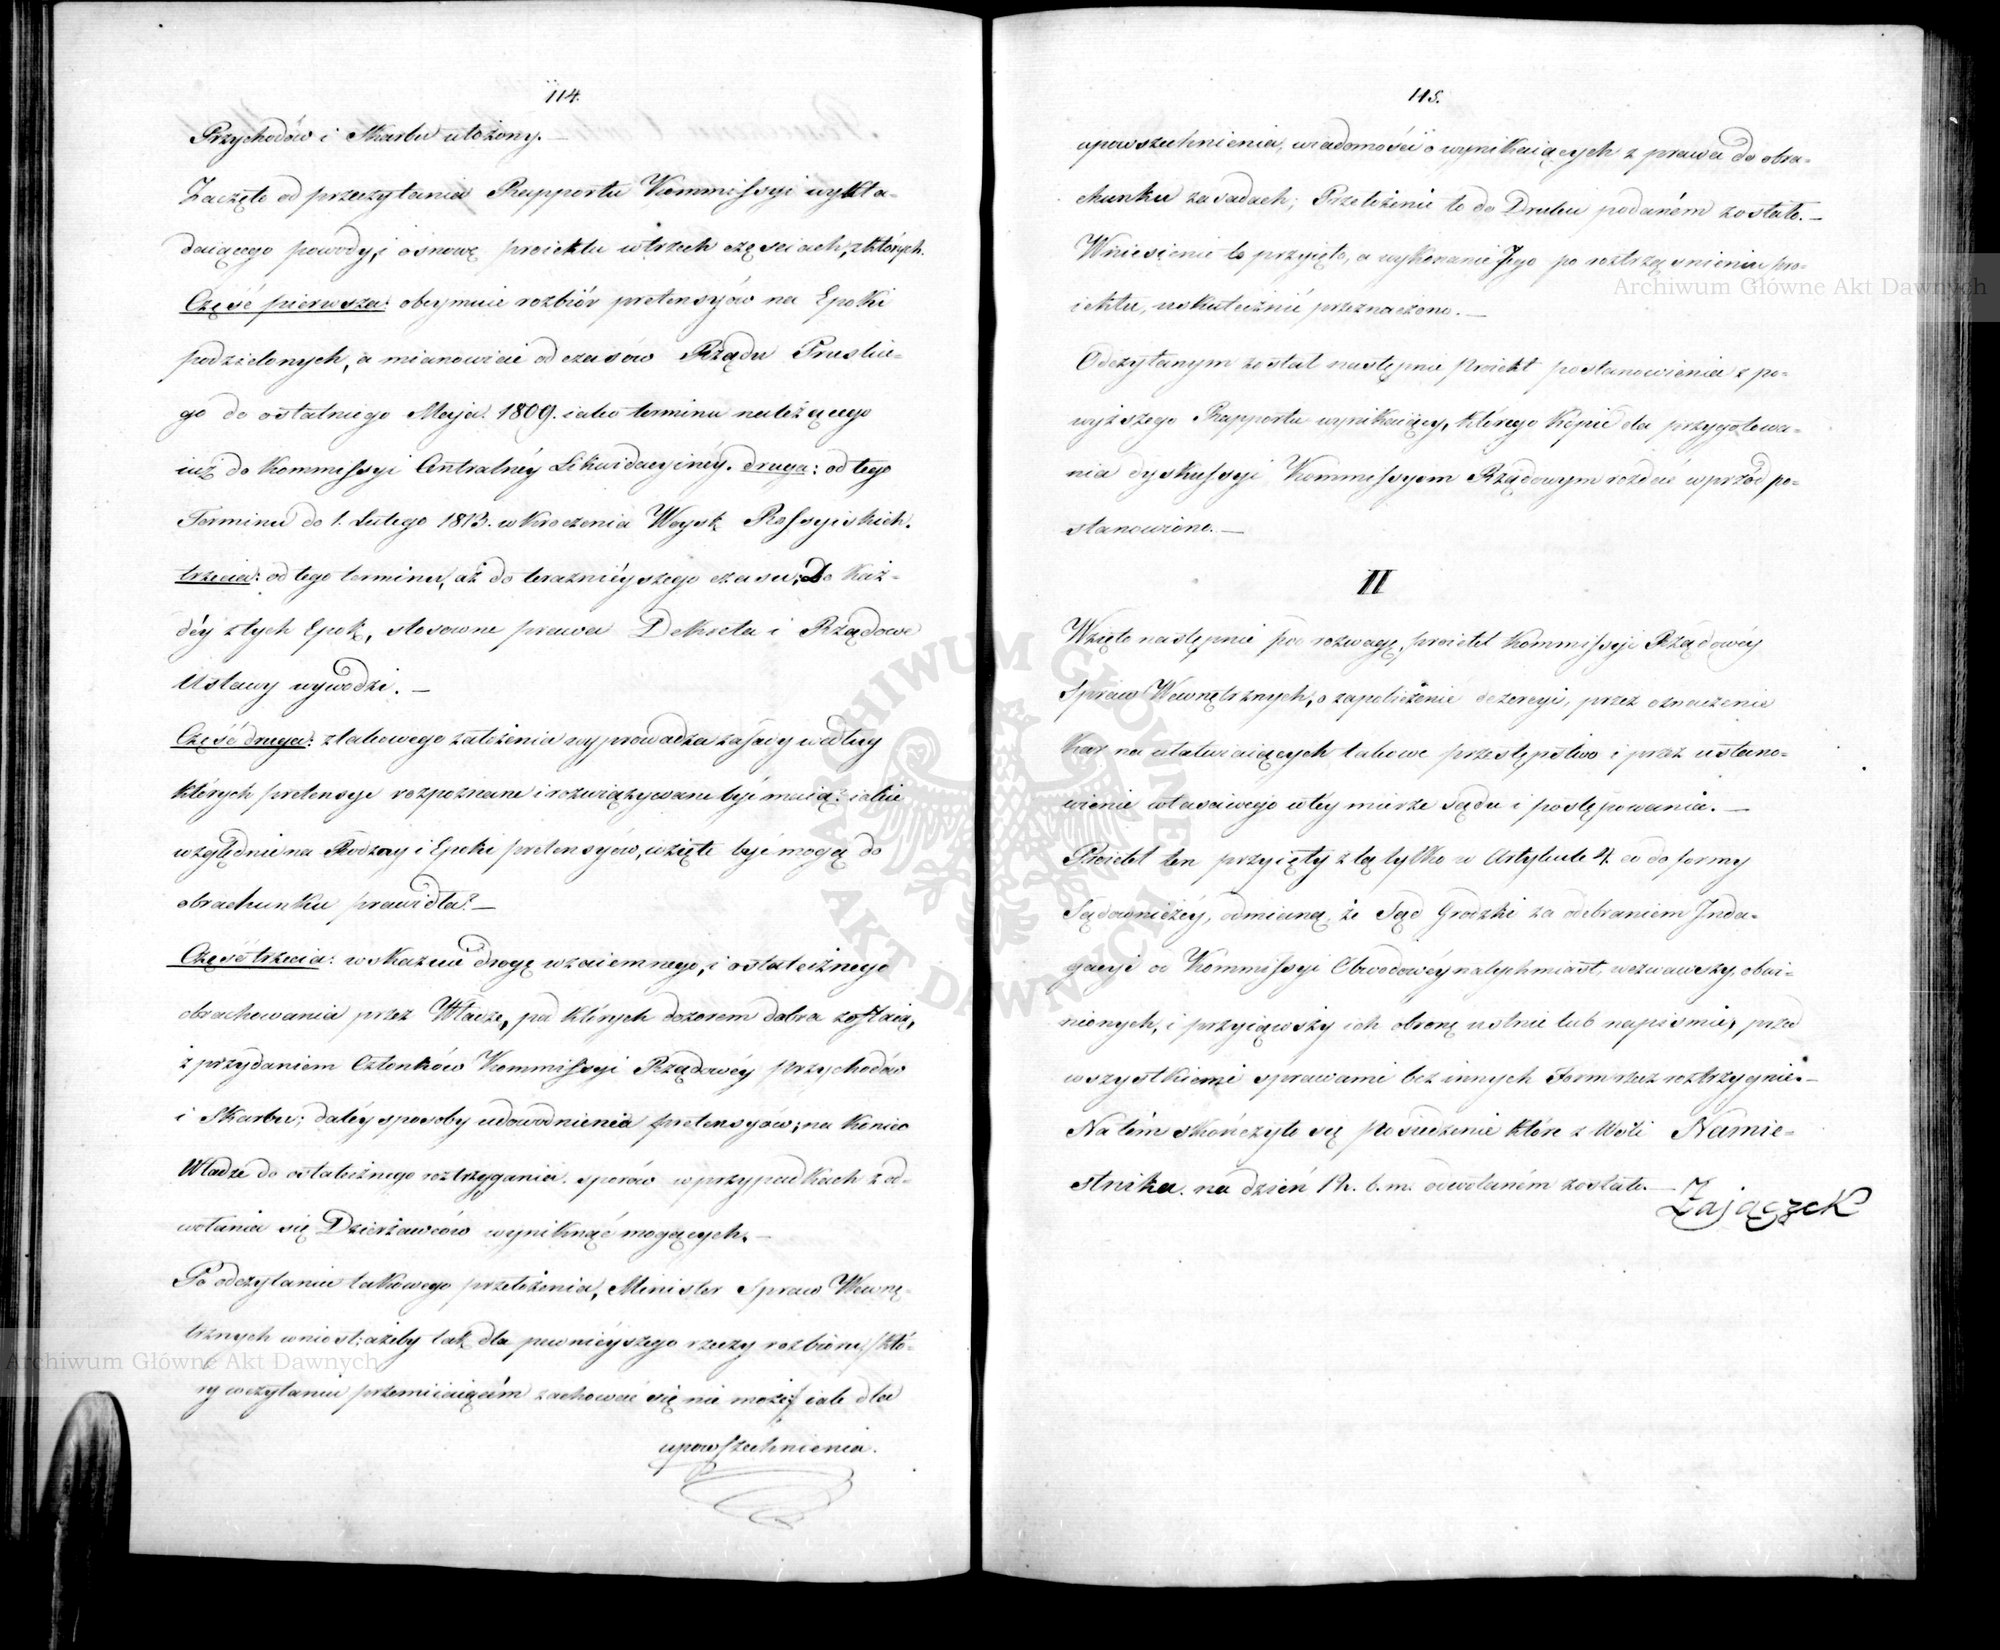 114.
Przychodów i Skarbu ułożony. —
Zaczęto od przeczytania Rapportu Kommissyi wykła-
daiącego powody, i osnowę proiektu w trzech częściach, z których.
Część pierwsza: obeymuie rozbiór pretensyów na Epoki
podzielonych, a mianowicie od czasow Rządu Pruskie-
go do ostatniego Maja. 1809. iako terminu należącego
iuż do Kommissyi Centralnéy Likwidacyinéy. druga: od tego
Terminu do 1. Lutego 1813. wkroczenia Woysk Rossyiskich.
trzecia: od tego terminu, aż do teraznieyszego czasu; Do Każ-
déy z tych Epok, stosowne prawa Dekreta i Rządowe
Ustawy wywodzi. —
Część druga: z takowego założenia wyprowadza zasady według
których pretensye rozpoznane i rozwiązywane być maią: iakie
względnie na Rodzay i Epoki pretensyów, wzięte być mogą do
obrachunku prawidła? —
Część trzecia: wskazuie drogę wzaiemnego, i ostatecznego
obrachowania przez Władze, pod których dozorem dobra zostaią,
z przydaniem Członków Kommissyi Rządowéy Przychodów
i Skarbu; daléy sposoby udowodnienia pretensyów; na koniec
Władze do ostatecznego roztrzygania sporów w przypadkach z od-
wołania się Dzierżawców wyniknąć mogących. —
Po odczytaniu takowego przełożenia, Minister Spraw Wewnę-
trznych wniost: ażeby tak dla pewnieyszego rzeczy rozbioru, /któ-
ry w czytaniu przemiiaiącém zachować się nie może/ iak dla
upowszechnienia.
115.
upowszechnienia, wiadomości o wynikaiących z prawa do obra-
chunku zasadach; Przełożenie to do Druku podaném zostało. —
Wniesienie to przyięto, a wykonanie Jego po roztrząśnieniu pro-
iektu, uskutecznić przeznaczono. —
Odczytanym został następnie Proiekt postanowienia z po-
wyższego Rapportu wynikaiący, którego Kopie dla przygotowa-
nia dyskussyi Kommissyom Rządowym rozdać wprzód po-
stanowiono. —
II
Wzięto następnie pod rozwagę, proiekt Kommissyi Rządowéy
Spraw Wewnętrznych, o zapobieżenie dezercyi, przez oznaczenie
Kar na ułatwiaiących takowe przestępstwo i przez ustano-
wienie właściwego w téy mierze sądu i postępowania. —
Proiekt ten przyięty z tą tylko w Artykule 4. co do formy
Sądowniczéy, odmianą, że Sąd Grodzki za odebraniem Inda-
gacyi od Kommissyi Obwodowéy natychmiast, wezwawszy obwi-
nionych, i przyiąwszy ich obronę ustnie lub na piśmie, przed
wszystkiemi sprawami bez innych Form rzecz roztrzygnie. —
Na tém skończyło się Posiedzenie które z Woli Namie-
stnika. na dzień 12. b. m. odwołaném zostało. —
Zajączek
Archiwum Główne Akt Dawnych
Archiwum Główne Akt Dawnych
ARCHIWUM GŁÓWNE AKT DAWNYCH